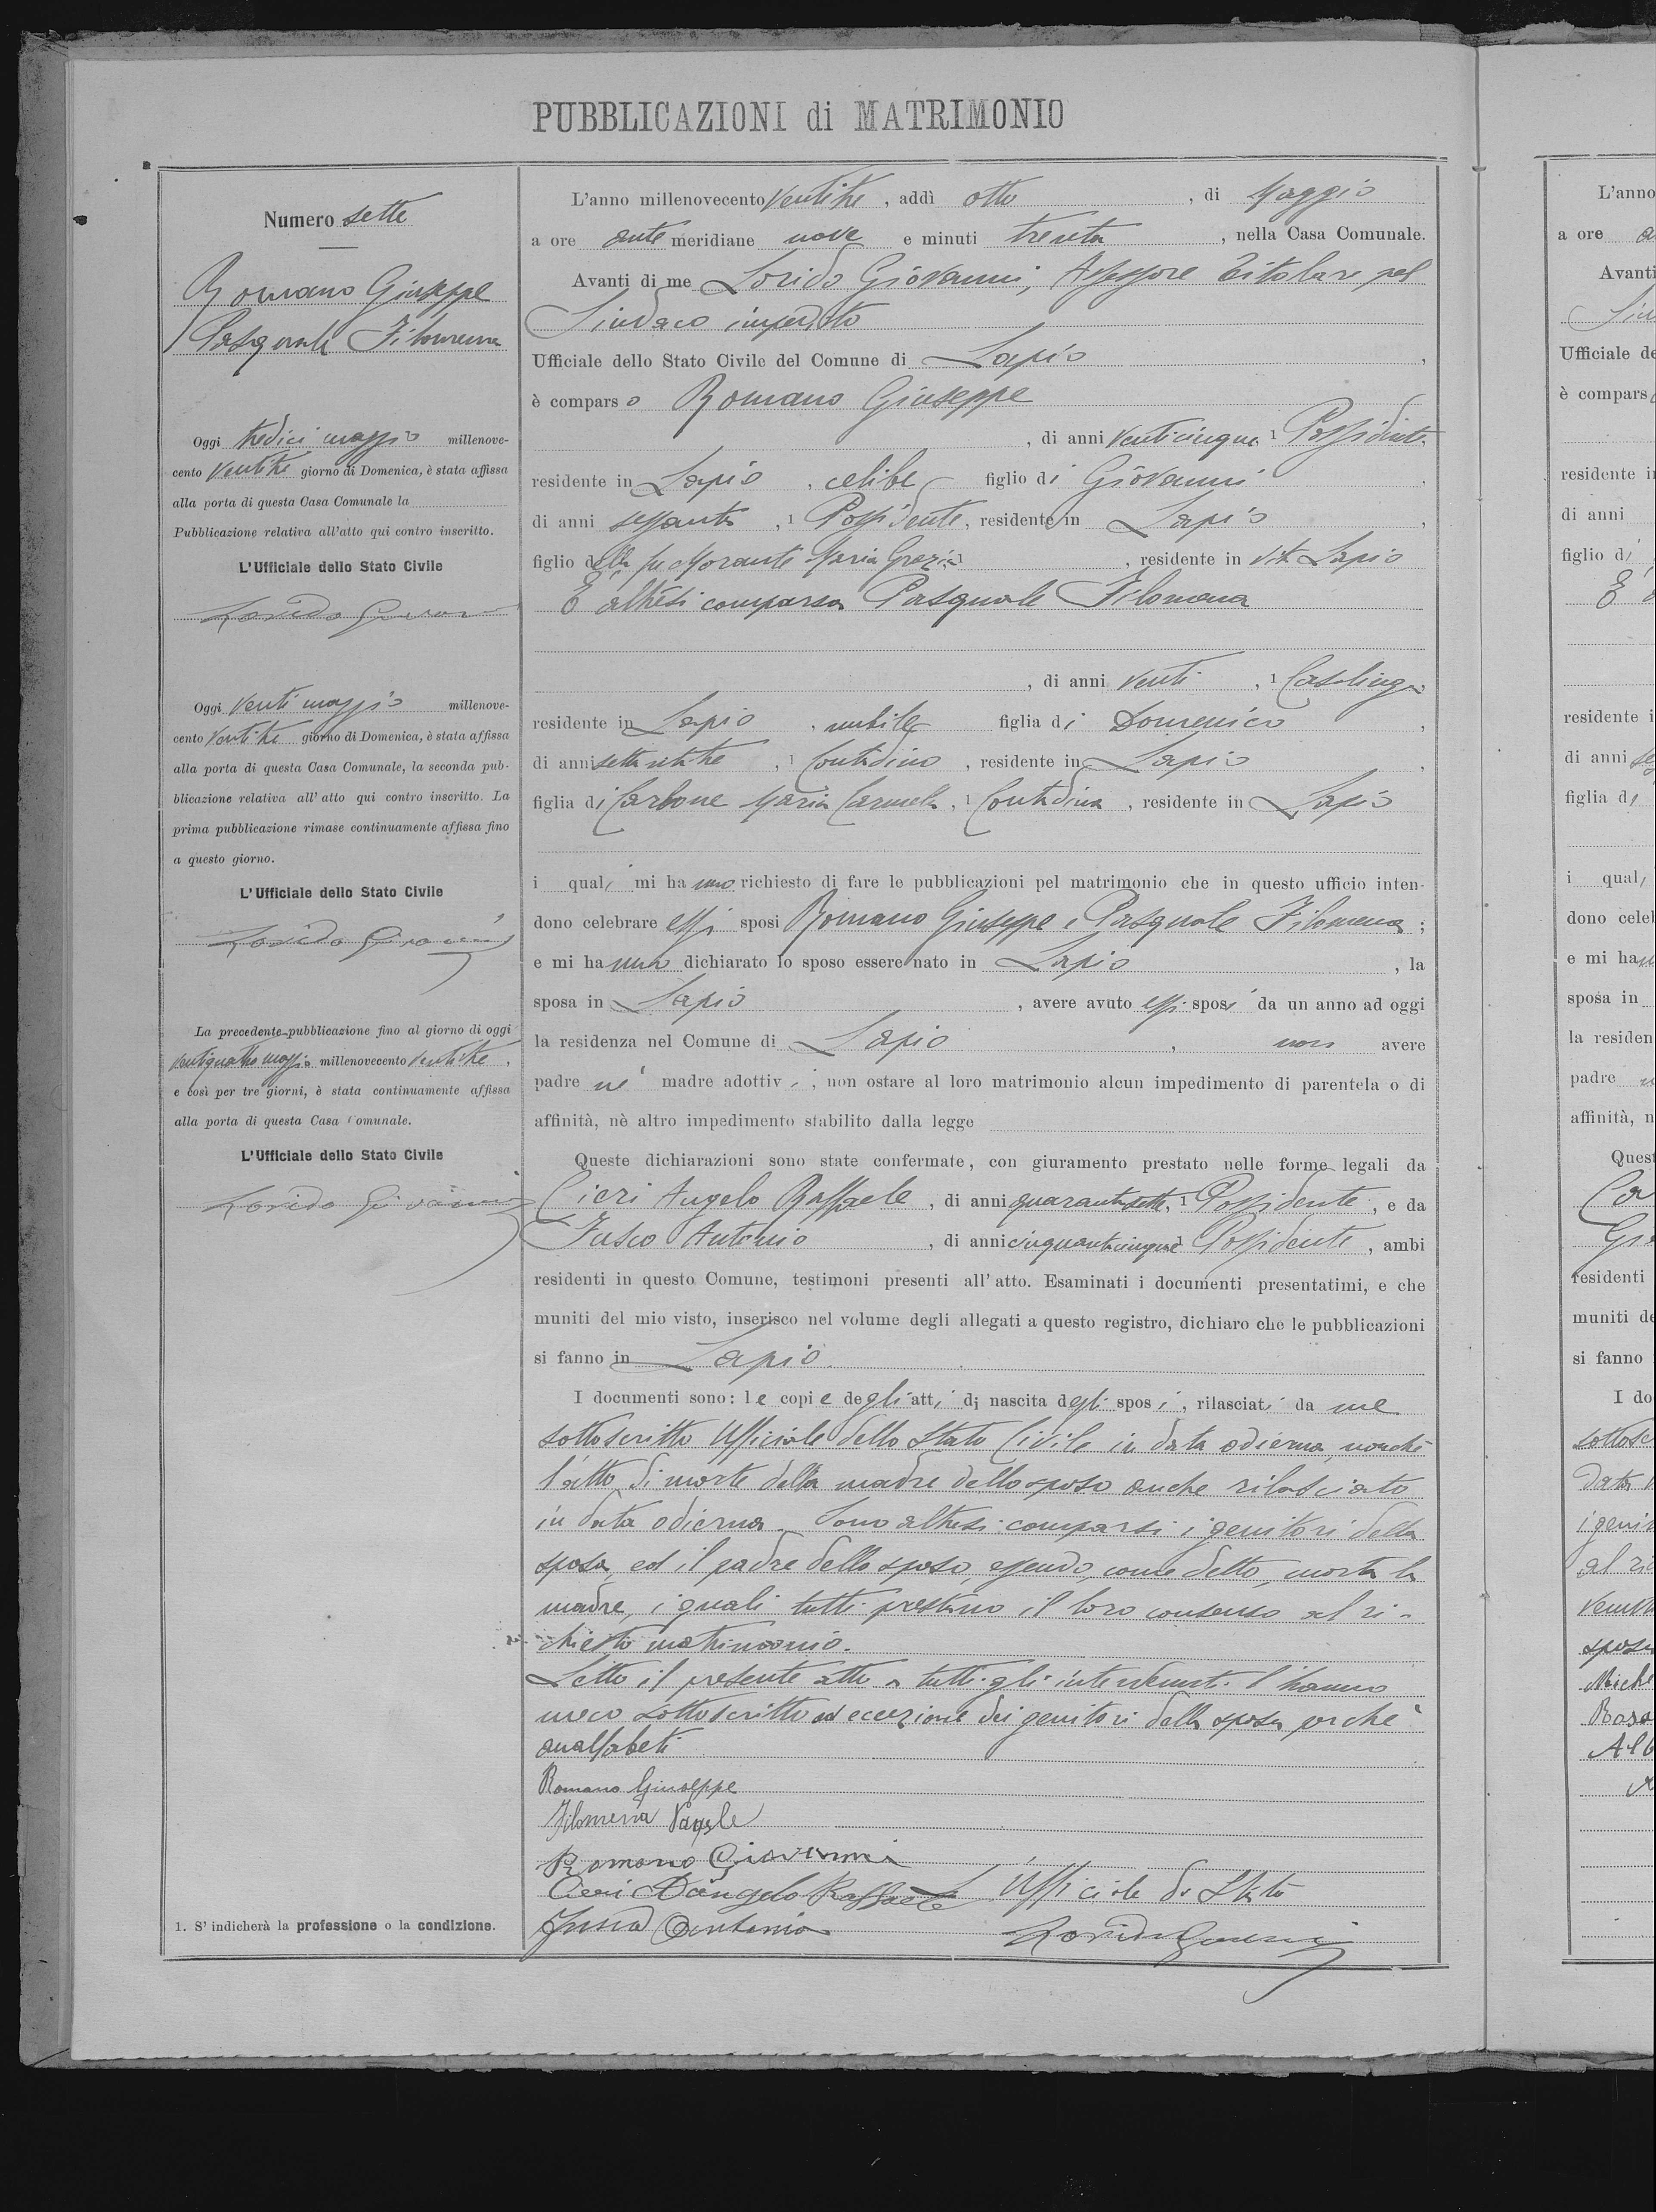 PUBBLICAZIONI di MATRIMONIO
Numero sette
Romano Giuseppe
Pasquale Filomena
Oggi tredici maggio millenove-
cento ventitre giorno di Domenica, è stata affissa
alla porta di questa Casa Comunale la
Pubblicazione relativa all'atto qui contro inscritto.
L'Ufficiale dello Stato Civile
Lorido Giovanni
Oggi venti maggio millenove-
cento ventitre giorno di Domenica, è stata affissa
alla porta di questa Casa Comunale, la seconda pub-
blicazione relativa all' atto qui contro inscritto. La
prima pubblicazione rimase continuamente affissa fino
a questo giorno.
L'Ufficiale dello Stato Civile
Lorido Giovanni
La precedente pubblicazione fino al giorno di oggi
ventiquattro maggio millenovecento ventitre,
e così per tre giorni, è stata continuamente affissa
alla porta di questa Casa Comunale.
L'Ufficiale dello Stato Civile
Lorido Giovanni
1. S' indicherà la professione o la condizione.
L'anno millenovecento ventitre, addì otto, di Maggio
a ore antemeridiane nove e minuti trenta, nella Casa Comunale.
Avanti di me Lorido Giovanni, Assessore titolare pel
Sindaco impedito
Ufficiale dello Stato Civile del Comune di Lapio,
è comparso Romano Giuseppe
, di anni venticinque, 1 Possidente
residente in Lapio, celibe figlio di Giovanni,
di anni sessanta, 1 Possidente, residente in Lapio,
figlio della fu Morante Maria Grazia, residente in vita Lapio
È altresì comparsa Pasquale Filomena
, di anni venti, 1 Casalinga
residente in Lapio, nubile figlia di Domenico,
di anni settantatre, 1 Contadino, residente in Lapio,
figlia di Carbone Maria Carmela, 1 Contadina, residente in Lapio
i quali mi hanno richiesto di fare le pubblicazioni pel matrimonio che in questo ufficio inten-
dono celebrare essi sposi Romano Giuseppe e Pasquale Filomena;
e mi hanno dichiarato lo sposo essere nato in Lapio, la
sposa in Lapio, avere avuto essi sposi da un anno ad oggi
la residenza nel Comune di Lapio, non avere
padre nè madre adottivi, non ostare al loro matrimonio alcun impedimento di parentela o di
affinità, nè altro impedimento stabilito dalla legge
Queste dichiarazioni sono state confermate, con giuramento prestato nelle forme legali da
Cieri Angelo Raffaele, di anni quarantasette, 1 Possidente, e da
Fusco Antonio, di anni cinquantacinque 1 Possidente, ambi
residenti in questo Comune, testimoni presenti all' atto. Esaminati i documenti presentatimi, e che
muniti del mio visto, inserisco nel volume degli allegati a questo registro, dichiaro che le pubblicazioni
si fanno in Lapio.
I documenti sono: le copie degli atti di nascita degli sposi, rilasciati da me
sottoscritto Ufficiale dello Stato Civile in data odierna, nonchè
l'atto di morte della madre dello sposo anche rilasciato
in data odierna. Sono altresì comparsi i genitori della
sposa, ed il padre dello sposo, essendo, come detto, morta la
madre, i quali tutti prestano il loro consenso al ri-
chiesto matrimonio.
Letto il presente atto a tutti gli intervenuti l'hanno
meco sottoscritto ad eccezione dei genitori della sposa perchè
analfabeti
Romano Giuseppe
Filomena
Romano Giovanni
Cieri D'Angelo Raffaele L'Ufficiale di Stato
Fusco Antonio Lorido Giovanni
L'anno
a ore
Avanti
Ufficiale de
è compars
residente i
di anni
figlio di
residente i
di anni
figlia di
i quali
dono cele
e mi ha
sposa in
la residen
padre
affinità, n
Quest
residenti
muniti de
si fanno
I do
sottosc
data
i geni
sposa
Miche
Rosa